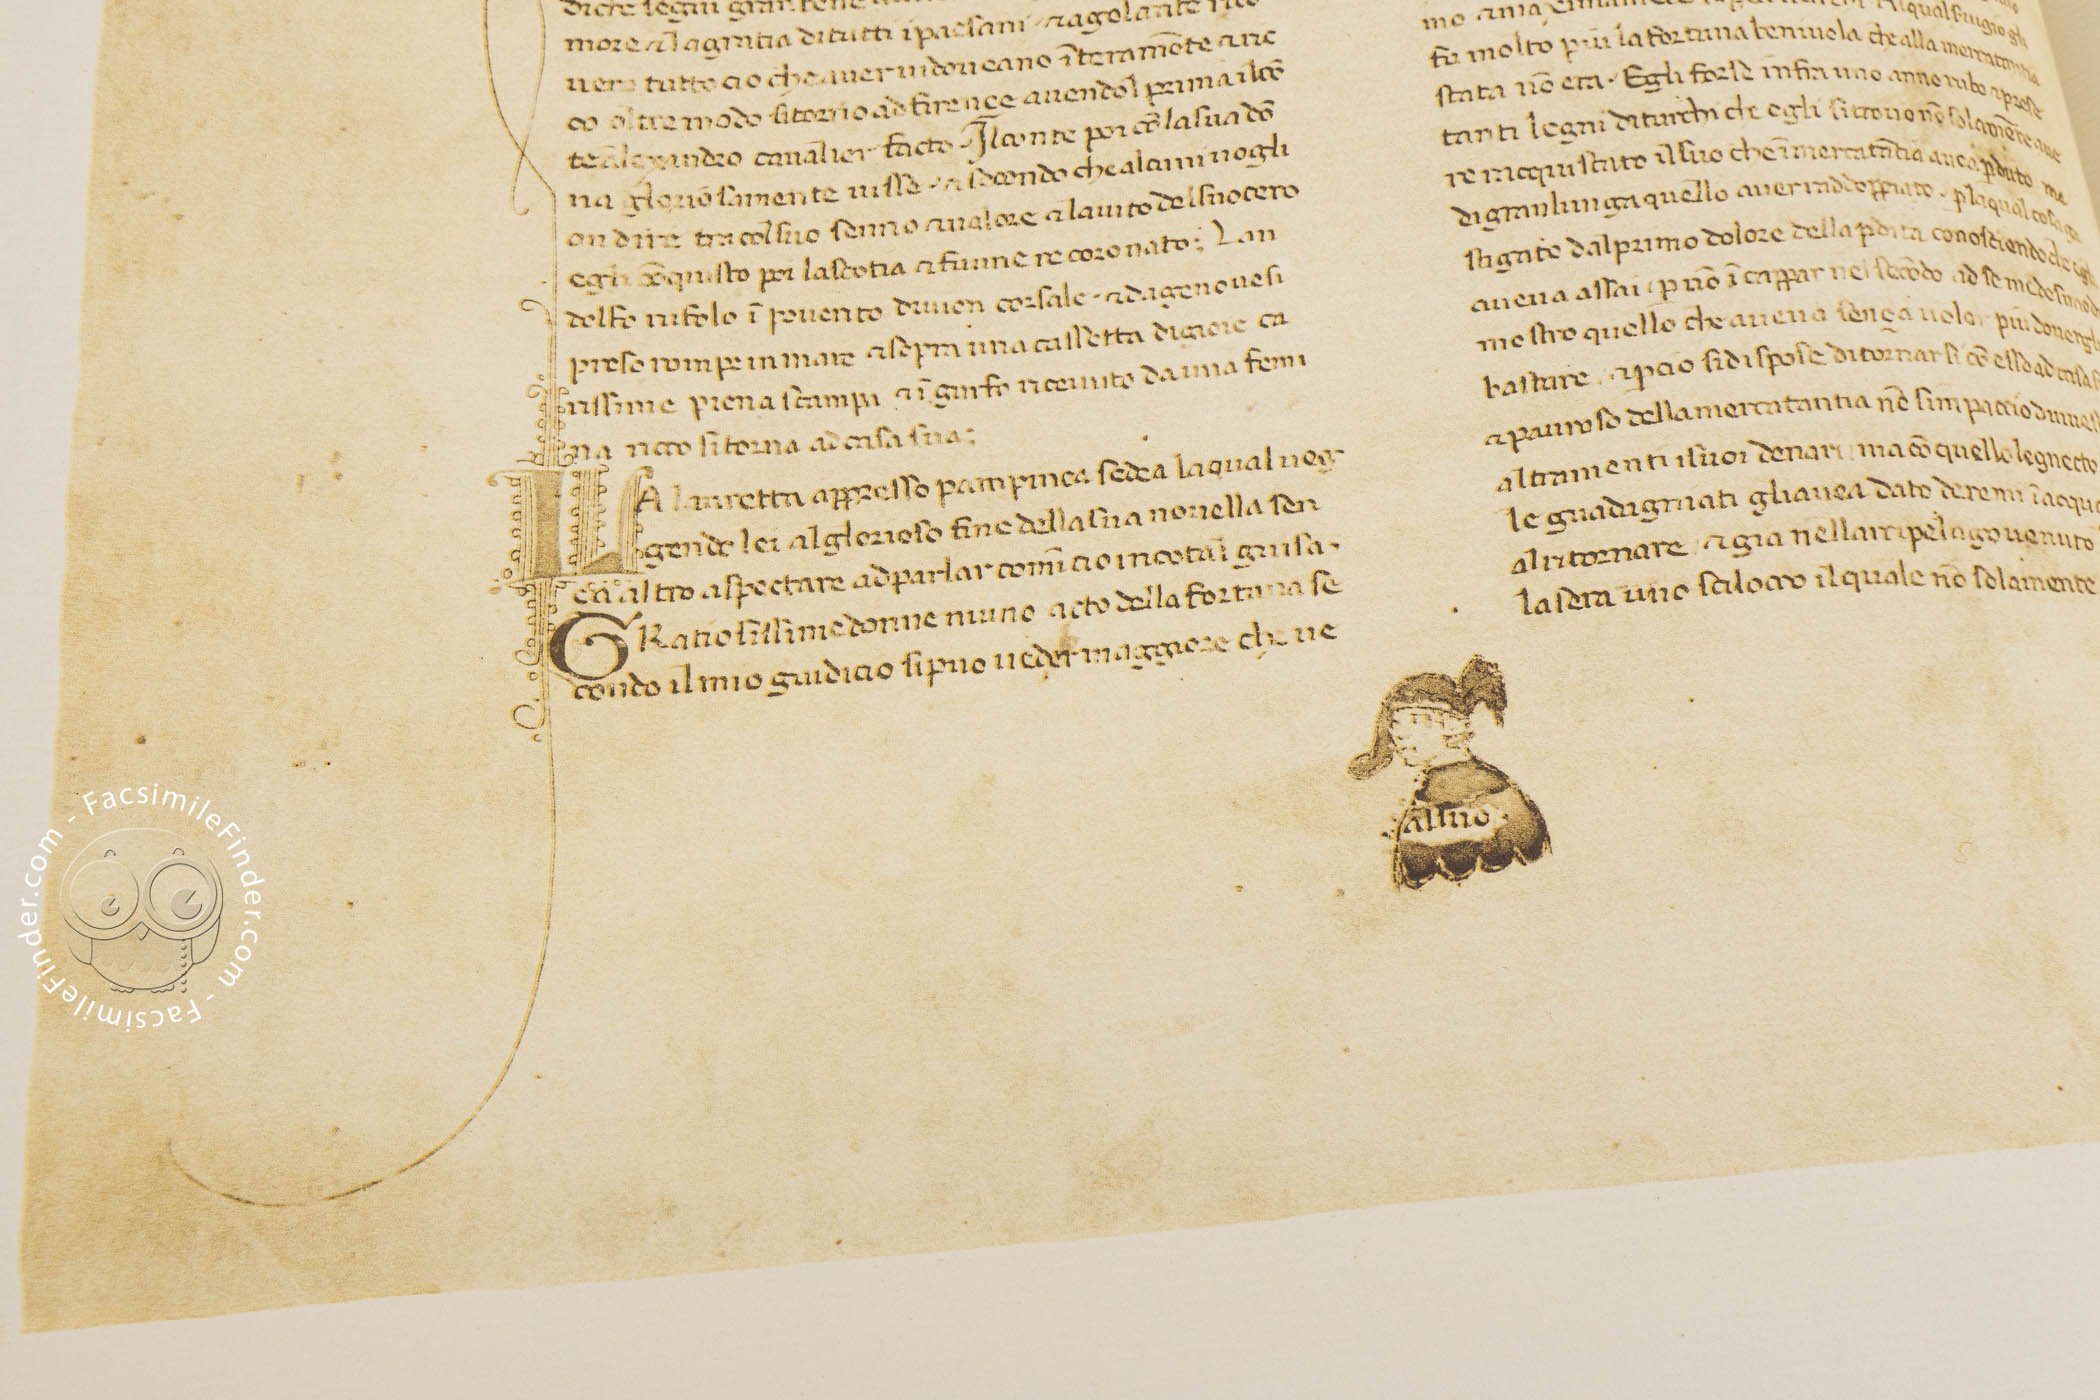 more & la gratia di tutti i paesani · & agolante
uere tutto cio che auer ui doueano īteramēte & ne
co oltre modo si torno ad firençe auendol prima il cō
te alexandro caualier facto · Il conte poi cō la sua dō
na gloriosamente uisse · & secondo che alcuni uogli
on dire tra col suo senno & ualore & laiuto del suocero
egli cōquisto poi la scotia & funne re coronato; Lan
dolfo rufolo ī pouento diuien corsale · & da genouesi
preso rompe in mare & sopra una cassetta di gioie ca
rissime piena scampa & ī gurfo riceuuto da una femi
na ricco si torna ad casa sua;
LA lauretta appresso pampinea sedea la qual ueg
gendo lei al glorioso fine della sua nouella sen
ça altro aspectare ad parlar comīcio in cotal guisa ·
GRatiosissime donne niuno acto della fortuna se
condo il mio giudicio si puo ueder maggiore che ue
fu molto piu la fortuna beniuola che alla mercatantia
stata nō era · Egli forse infra uno anno rubo & prese
tanti legni di turchi che egli si trouo nō solamēte aue
re racquistato il suo che ī mercatātia auea pduto · ma
di gran lunga quello auer raddoppiato · p la qual cosa ga
stigato dal primo dolore della pdita conosciendo che egli
aueua assai p nō īcappar nel secōdo ad se medesimo di
mostro quello che aueua sença uoler piu douergli
bastare · & pcio si dispose di tornarsi cō esso ad casa s
& pauroso della mercatantia nō simpaccio dinuest
altramenti i suoi denari ma cō quello legnecto
le guadagniati gli auea dato de remi ī acqua
al ritornare · & gia nellarcipelago uenuto
la sera uno scilocco il quale nō solamente
al suo
FacsimileFinder.com - FacsimileFinder.com - FacsimileFinder.com